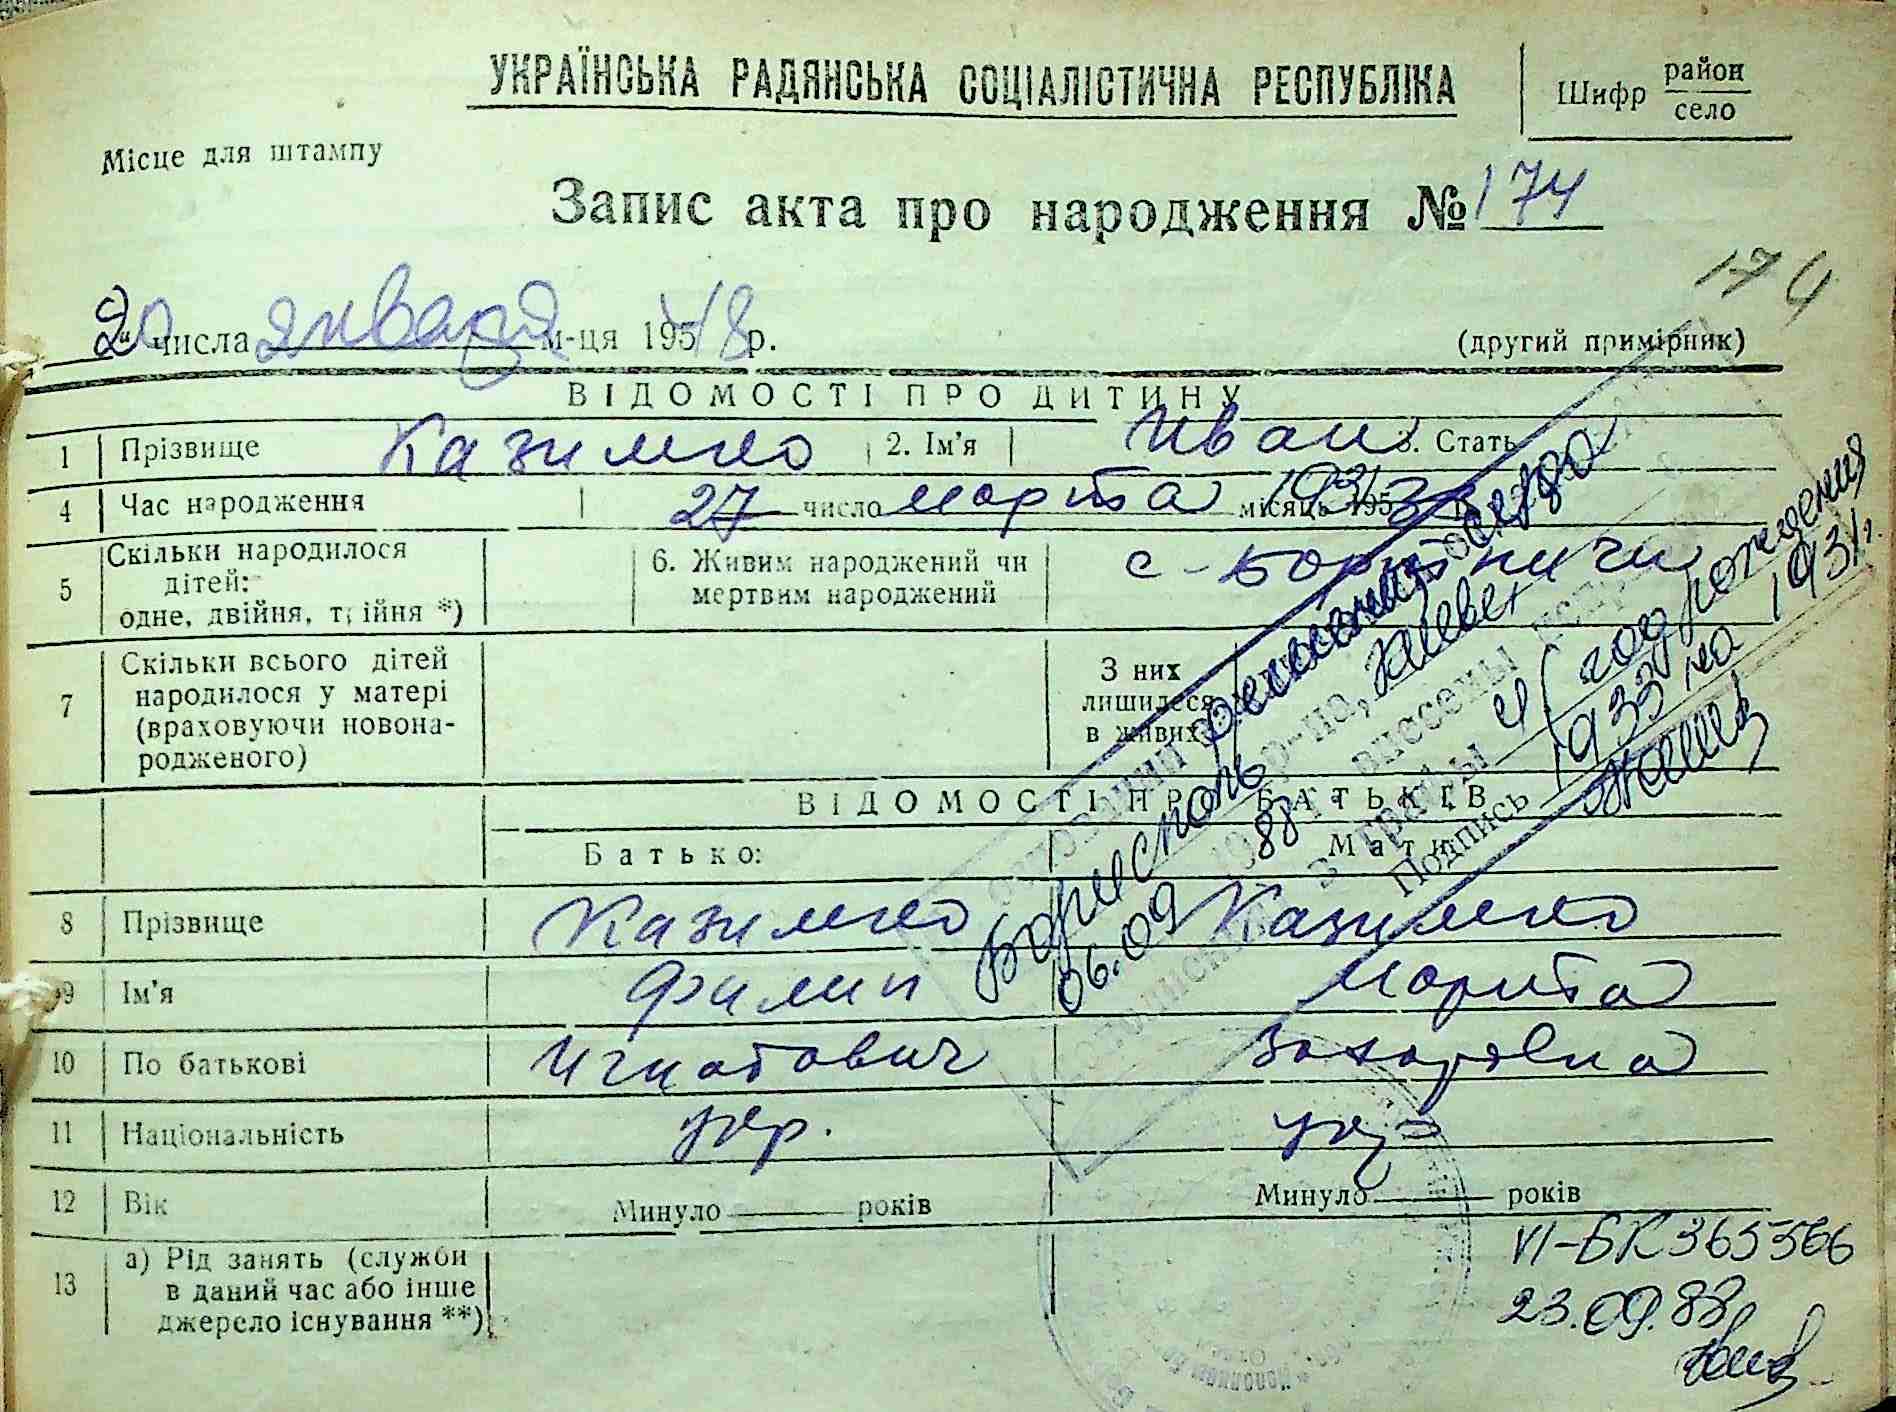 УКРАЇНСЬКА РАДЯНСЬКА СОЦІАЛІСТИЧНА РЕСПУБЛІКА
Шифр район
село
Місце для штампу
Запис акта про народження № 174
174
20 числа января м-ця 195 48 р.
(другий примірник)
ВІДОМОСТІ ПРО ДИТИНУ
1 Прізвище Казимко 2. Ім'я Иван 3. Стать
4 Час народження 27 число марта місяць 195
5 Скільки народилося дітей: одне, двійня, трійня *) 6. Живим народжений чи мертвим народжений
7 Скільки всього дітей народилося у матері (враховуючи новонародженого) З них лишилося в живих
ВІДОМОСТІ ПРО БАТЬКІВ
Батько: Мати
8 Прізвище Казимко Казимко
9 Ім'я Филип Марта
10 По батькові Игнатович Захаровна
11 Національність укр. укр
12 Вік Минуло років Минуло років
13 а) Рід занять (служби в даний час або інше джерело існування **)
На основании
Бориспольского р-на, Киевск
06.09 88 внесены
в графы 4 / год рождения
1933 на 1931 г.
Подпись
VI-БК 365566
23.09.88